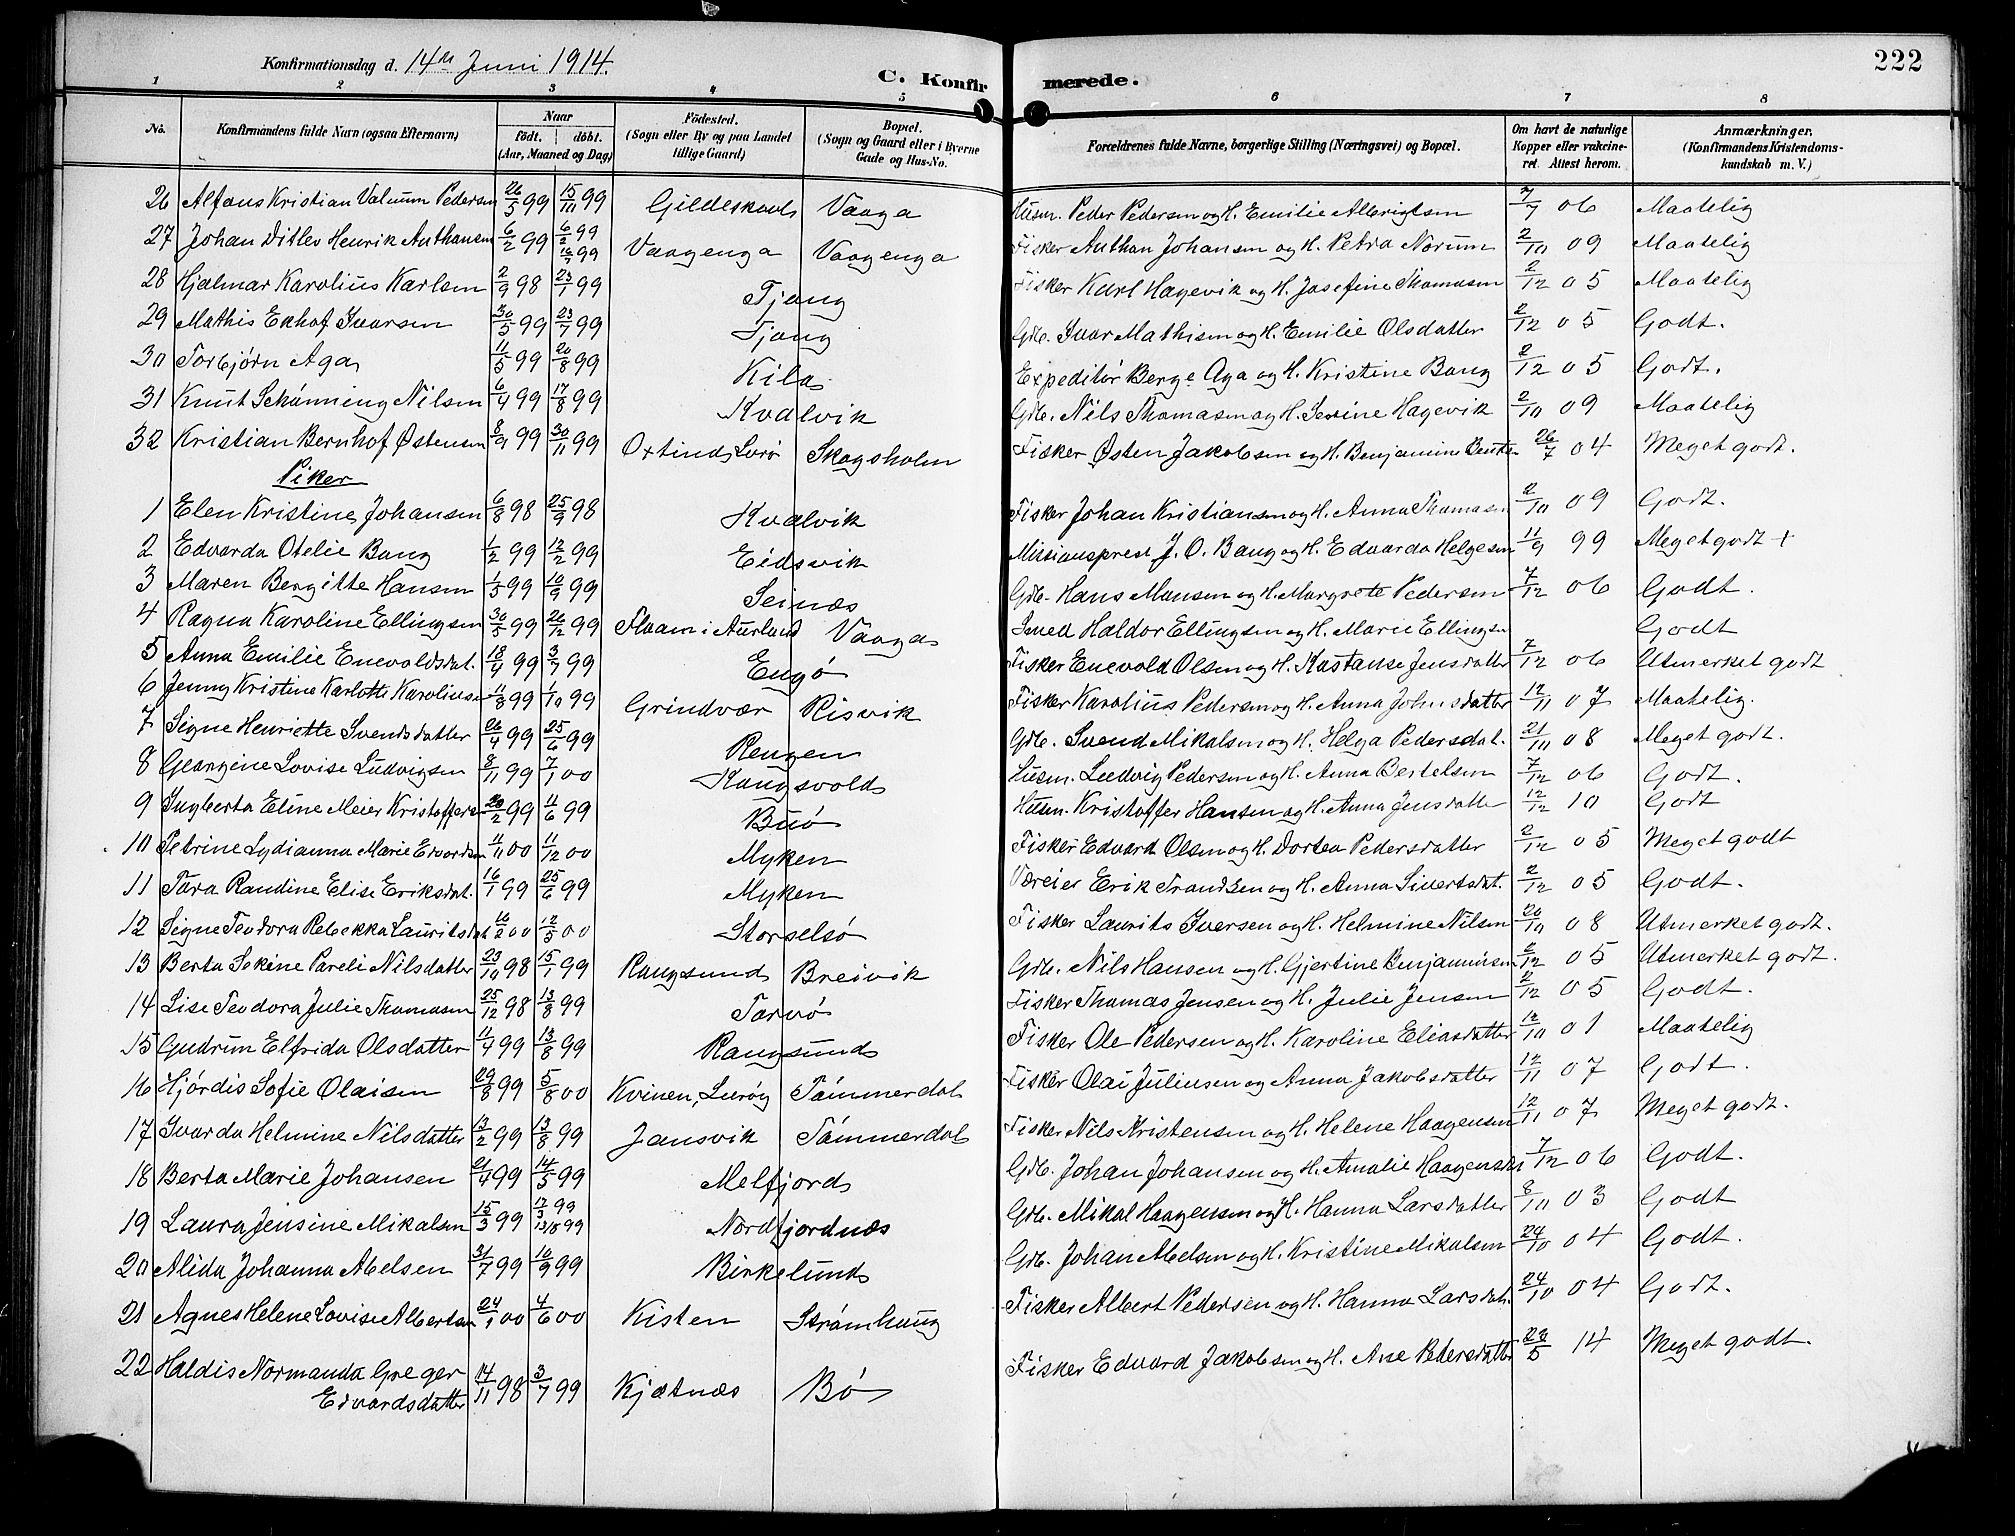 222
Konfirmationsdag d. 14de Juni 1914.
C. Konfirmerede.
1 2 3 4 5 6 7 8
No. Konfirmandens fulde Navn (ogsaa Efternavn) Naar født. døbt. (Aar, Maaned og Dag) Fødested. (Sogn eller By og paa Landet tillige Gaard) Bopæl. (Sogn og Gaard eller i Byerne Gade og Hus-No. Forældrenes fulde Navne, borgerlige Stilling (Næringsvei) og Bopæl. Om havt de naturlige Kopper eller vakcineret. Attest herom. Anmærkninger. (Konfirmandens Kristendomskundskab m. V.)
26 Alfons Kristian Valnum Pedersen 26/5 99 15/10 99 Gildeskaal Vaaga Husm. Peder Pedersen og H. Emilie Albrigtsen 7/7 06 Maatelig
27 Johan Ditlev Henrik Anthonsen 6/2 99 6/2 99 16/7 99 Vaagenga Vaagenga Fisker Anthon Johansen og H. Petra Norum 2/10 09 Maatelig
28 Hjalmar Karolius Karlsen 2/9 98 23/1 99 Tjong Fisker Karl Hagevik og H. Josefine Thomasen 2/12 05 Maatelig
29 Mathis Ekhof Ivarsen 30/5 99 23/7 99 Tjong Gdb. Ivar Mathisen og H. Emilie Olsdatter 2/12 05 Godt.
30 Torbjørn Aga 11/5 99 20/8 99 Kila Expeditør Berge Aga og H. Kristine Bang 2/12 05 Godt.
31 Knut Schønning Nilsen 6/4 99 17/8 99 Kvalvik Gdb. Nils Thomasen og H. Sevine Hagevik 2/10 09 Maatelig
32 Kristian Bernhof Østensen 8/9 99 30/11 99 Oxtind, Lurø Skogsholm Fisker Østen Jakobsen og H. Benjamine 26/7 04 Meget godt.
Piker
1 Elen Kristine Johansen 6/8 98 25/9 98 Kvalvik Fisker Johan Kristiansen og H. Anna Thomasen 2/10 09 Godt.
2 Edvarda Otelie Bang 1/2 99 12/2 99 Eidsvik Missionsprest J. O. Bang og H. Edvarda Helgesen 11/9 99 Meget godt +
3 Maren Bergitte Hansen 1/5 99 10/9 99 Seinæs Gdb. Hans Monsen og H. Margrete Pedersen 7/12 06 Godt.
4 Ragna Karoline Ellingsen 30/5 99 26/12 99 Flaam i Aurland Vaaga Smed Haldor Ellingsen og H. Marie Ellingsen Godt
5 Anna Emilie Enevoldsdat. 18/4 99 3/7 99 Engø Fisker Enevold Olsen og H. Kostanse Jensdatter 7/12 06 Utmerket godt
6 Jenny Kristine Karlotte Karoliussen 11/8 99 1/10 99 Grindvær Risvik Fisker Karolius Pedersen og H. Anna Johnsdatter 12/11 07 Maatelig.
7 Signe Henriette Svendsdatter 26/4 99 25/6 99 Rengen Gdb. Svend Mikalsen og H. Helga Pedersdat. 21/11 08 Meget godt.
8 Georgine Lovise Ludvigsen 8/11 99 7/1 00 Kongsvold Husm. Ludvig Pedersen og H. Anna Bertelsen 7/12 06 Godt.
9 Ingberta Eline Meier Kristoffers 20/2 99 11/6 99 Buø Husm. Kristoffer Hansen og H. Anna Jensdatter 12/12 10 Godt
10 Petrine Lydianna Marie Edvardsen 11/11 00 11/12 00 Myken Fisker Edvard Olsen og H. Dortea Pedersdatter 2/12 05 Meget godt
11 Tora Randine Elise Eriksdat. 16/1 99 25/6 99 Myken Væreier Erik Trondsen og H. Anna Sivertsdat. 2/12 05 Godt.
12 Signe Teodora Rebekka Lauritsdat 16/2 00 12/5 00 Storselsø Fisker Laurits Iversen og H. Helmine Nilsen 20/10 08 Utmerket godt.
13 Berta Sekine Pareli Nilsdatter 23/10 98 15/1 99 Rangsund Breivik Gdb. Nils Hansen og H. Gjertine Benjaminsen 2/12 05 Utmerket godt.
14 Lise Teodora Julie Thomasen 25/12 98 13/8 99 Tarvø Fisker Thomas Jensen og H. Julie Jensen 2/12 05 Godt.
15 Gudrun Elfrida Olsdatter 11/4 99 13/8 99 Rangsund Fisker Ole Pedersen og H. Karoline Eliasdatter 12/10 01 Maatelig
16 Hjørdis Sofie Olaisen 29/8 99 5/8 00 Kvinen, Lurøy Tømmerdal Fisker Olai Juliusen og Anna Jakobsdatter 12/11 07 Godt.
17 Ivarda Helmine Nilsdatter 13/2 99 13/8 99 Jansvik Tømmerdal Fisker Nils Kristensen og H. Helene Haagensen 12/11 07 Meget godt.
18 Berta Marie Johansen 21/4 99 14/5 99 Melfjord Gdb. Johan Johansen og H. Amalie Haagensdat 7/12 06 Godt.
19 Laura Jensine Mikalsen 15/3 99 17/3 99 13/8 99 Nordfjordnæs Gdb. Mikal Haagensen og H. Hanna Larsdatter 8/10 03 Godt
20 Alida Johanna Abelsen 31/7 99 10/9 99 Birkelund Gdb. Johan Abelsen og H. Kristine Mikalsen 24/10 04 Godt.
21 Agnes Helene Lovise Albertsen 24/1 00 4/6 00 Kisten Strømhaug Fisker Albert Pedersen og H. Hanna Larsdat. 24/10 04 Godt.
22 Haldis Normanda Greger Edvardsdatter 14/11 98 3/7 99 Kjøtnæs Bø Fisker Edvard Jakobsen og H. Ane Pedersdatter 28/5 14 Meget godt.